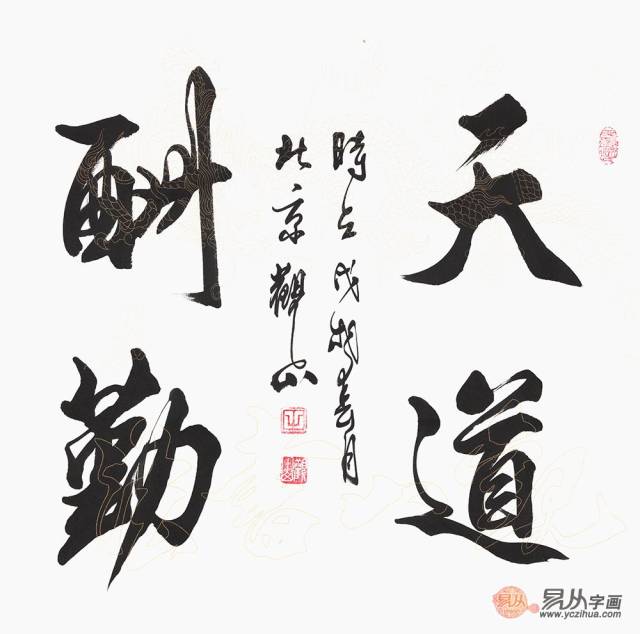 天道
酬勤
時在戊戌春月
北京觀山
易从
易从字画
www.yczihua.com